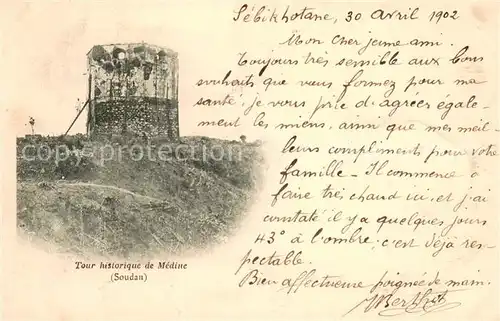 Sébikhotane, 30 Avril 1902
Mon cher jeune ami.
Toujours très sensible aux bons
souhaits que vous formez pour ma
santé, je vous prie d'agréer égale-
ment les miens, ainsi que mes meil-
leurs compliments pour votre
famille - Il commence à
faire très chaud ici, et j'ai
constaté il y a quelques jours
43° à l'ombre, c'est déjà res-
pectable.
Bien affectueuse poignée de main.
copyright
Tour historique de Médine
(Soudan)